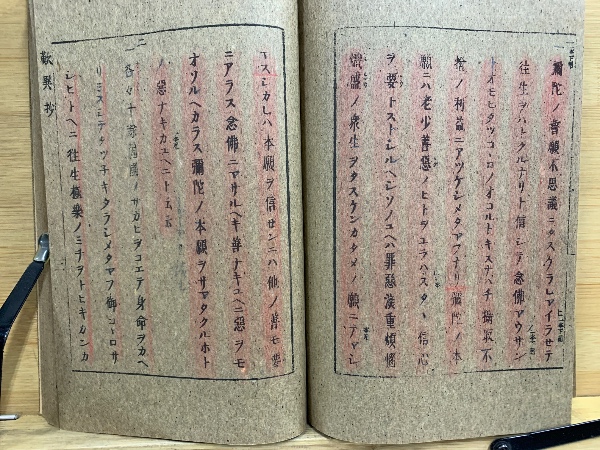 一 彌陀ノ誓願不思議ニタスケラレマイラセテ
往生ヲハトクルナリト信シテ念佛マウサン
トオモヒタツコヽロノオコルトキスナハチ攝取不
捨ノ利益ニアツケシメタマフナリ彌陀ノ本
願ニハ老少善惡ノヒトヲエラハスタヽ信心
ヲ要トストシルヘシソノユヘハ罪惡深重煩惱
熾盛ノ衆生ヲタスケンカタメノ願ニテマシ
マスシカレハ本願ヲ信センニハ他ノ善モ要
ニアラス念佛ニマサルヘキ善ナキユヘニ惡ヲモ
オソルヘカラス彌陀ノ本願ヲサマタクルホト
ノ惡ナキカユヘニト云云
二
一 各々十餘箇國ノサカヒヲコエテ身命ヲカヘ
リミスシテタツネキタラシメタマフ御コヽロサ
シヒトヘニ往生極樂ノミチヲトヒキカンカ
歎異抄